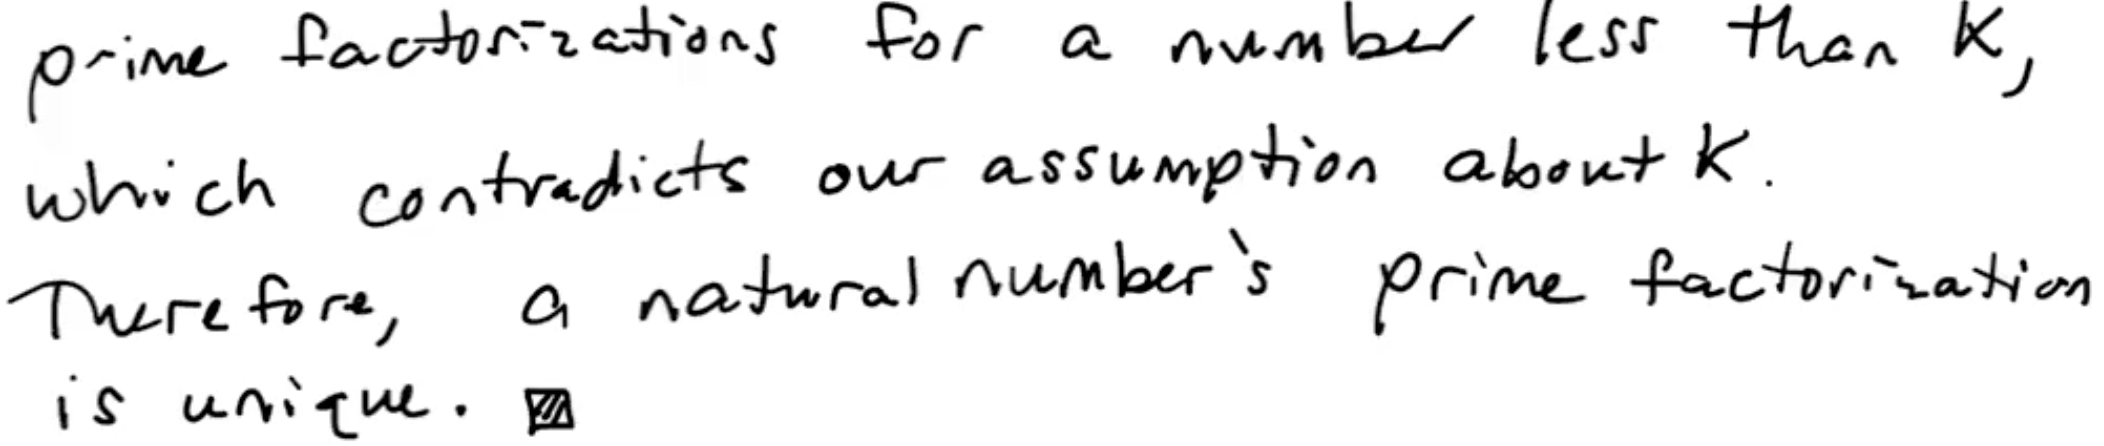 prime factorizations for a number less than K,
which contradicts our assumption about K.
Therefore, a natural number's prime factorization
is unique.